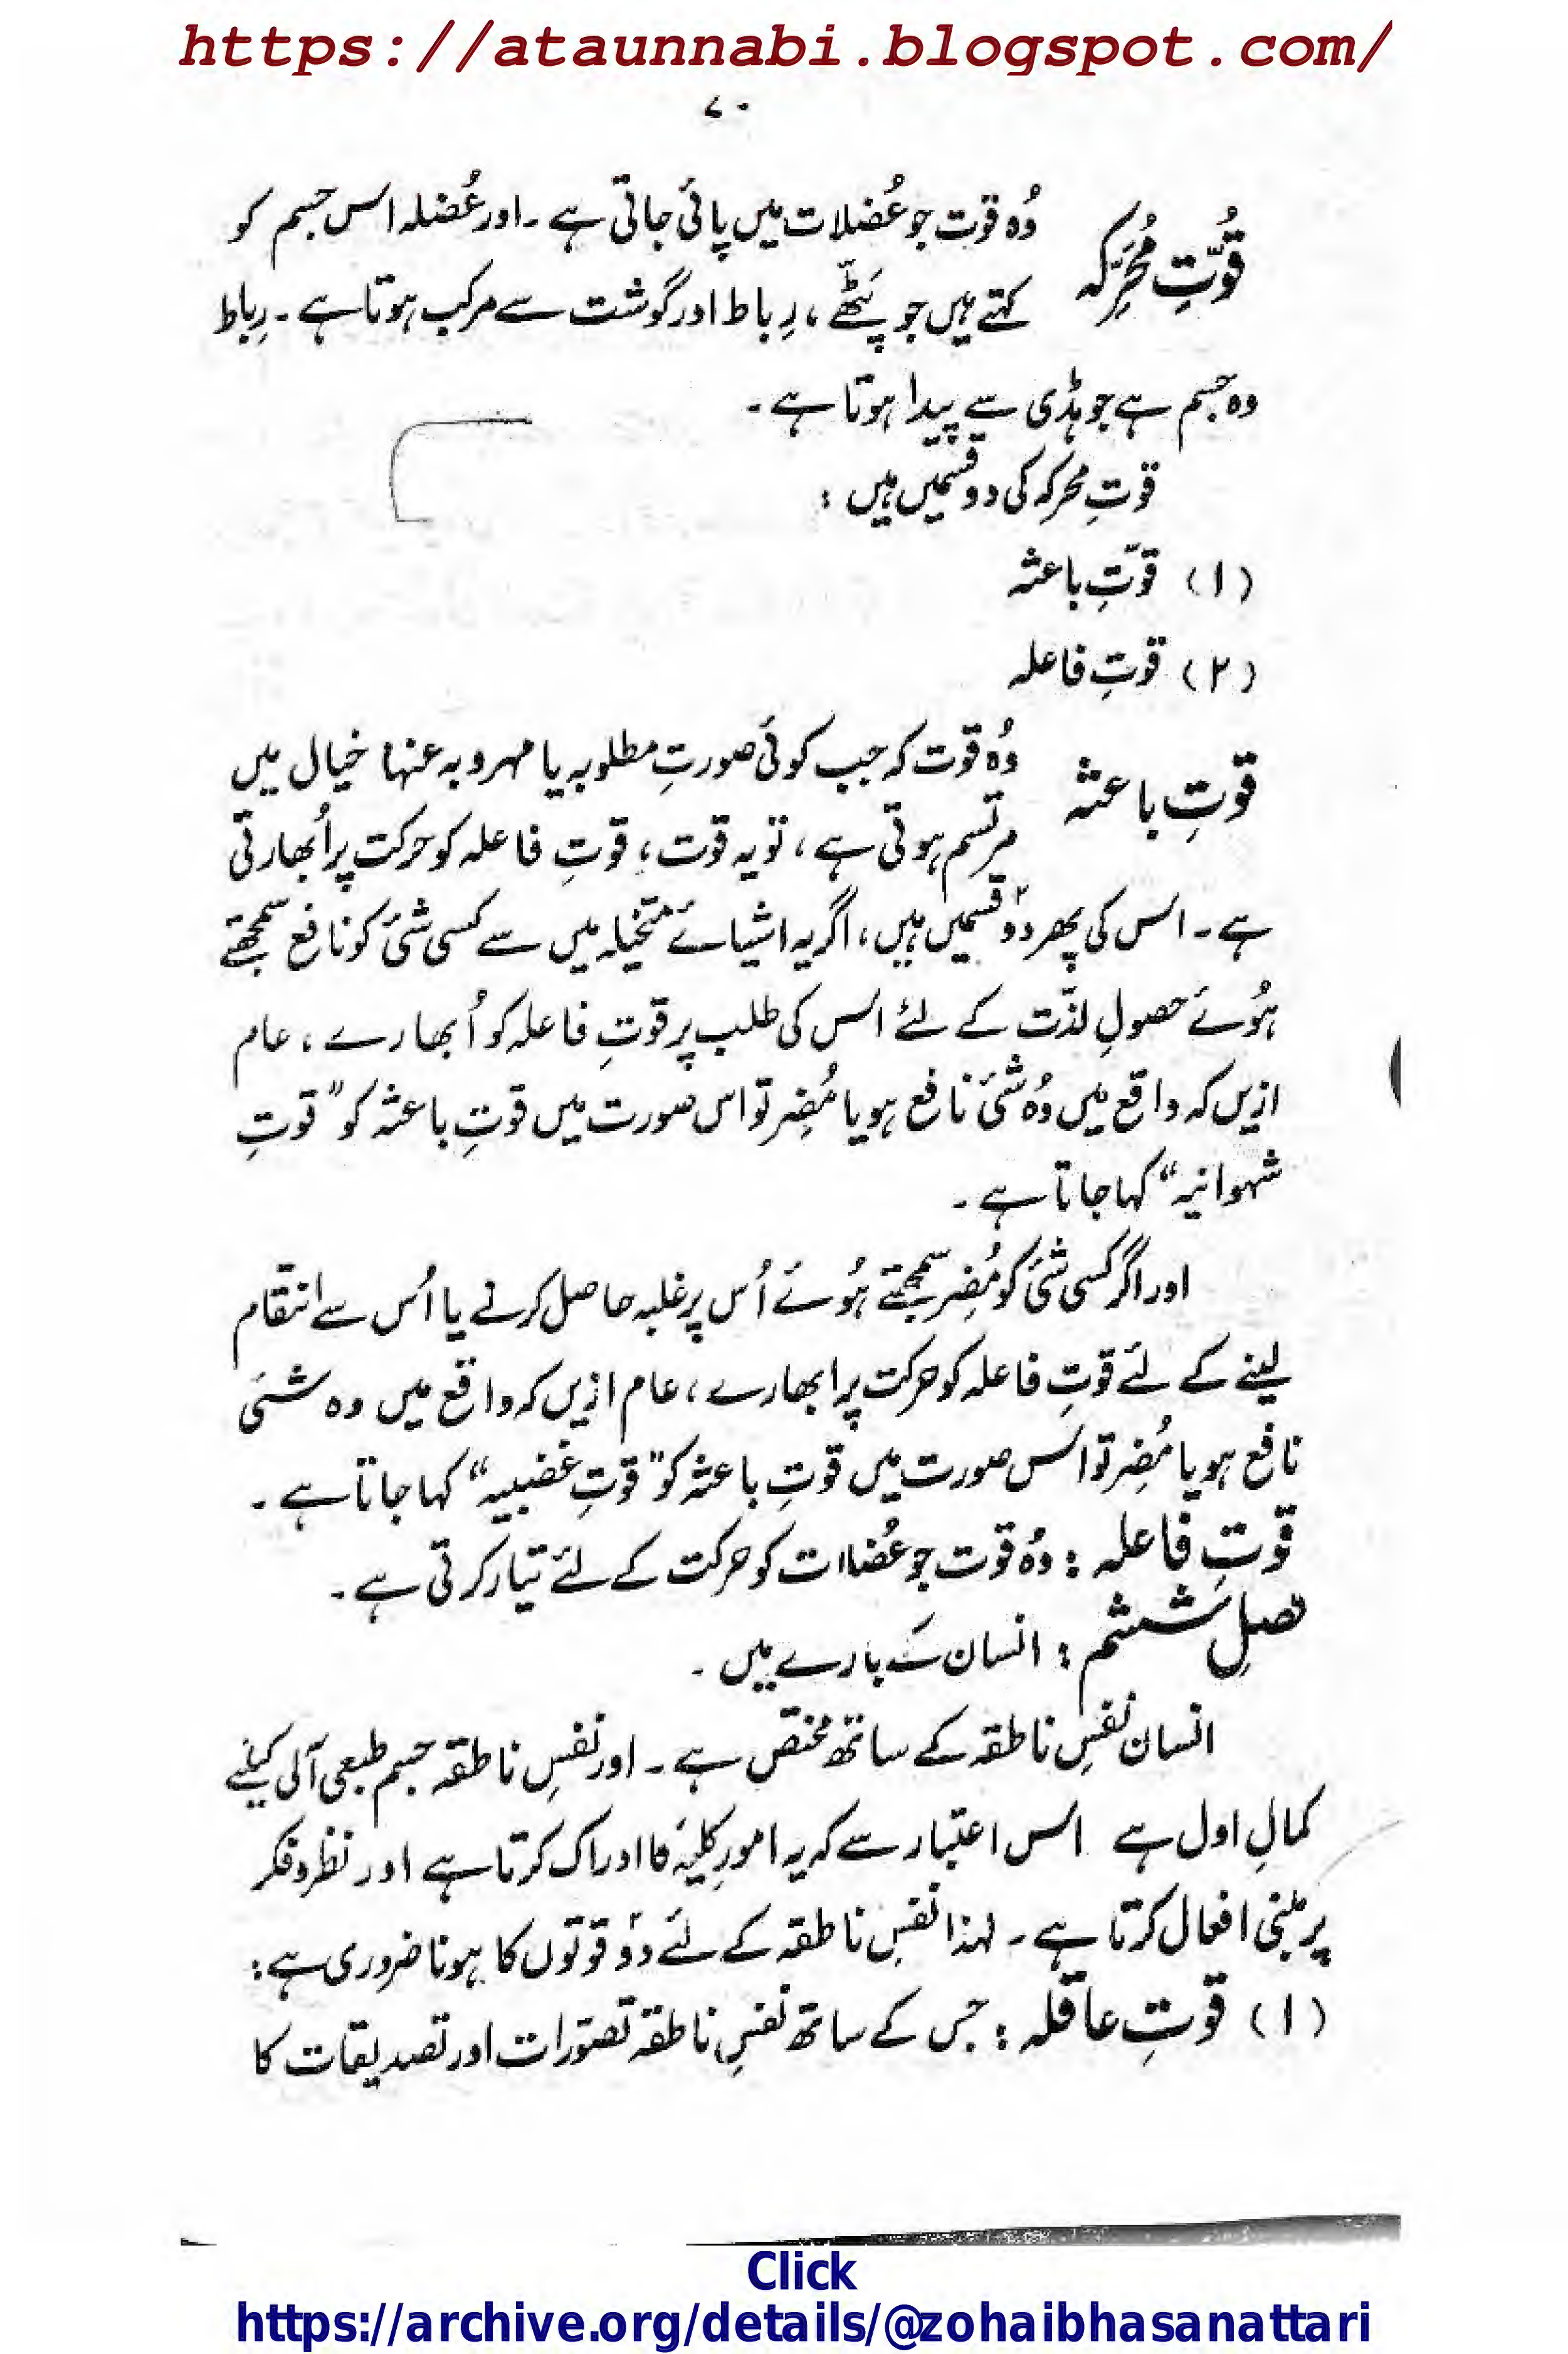 https://ataunnabi.blogspot.com/
۷۰
قُوّتِ مُحَرِّکہ
وُہ قوّت جو عُضلات میں پائی جاتی ہے ۔ اور عُضلہ اس جسم کو
کہتے ہیں جو پَٹّھے ، رِباط اور گوشت سے مرکب ہوتا ہے ۔ رِباط
وہ جسم ہے جو ہڈی سے پیدا ہوتا ہے ۔
قوّتِ محرکہ کی دو قسمیں ہیں :
(۱) قوّتِ باعثہ
(۲) قوّتِ فاعلہ
قوّتِ باعثہ
وُہ قوّت کہ جب کوئی صورتِ مطلوبہ یا مہروبہ عنہا خیال میں
مرتسم ہوتی ہے ، تو یہ قوّت ، قوّتِ فاعلہ کو حرکت پر اُبھارتی
ہے ۔ اس کی پھر دوؔ قسمیں ہیں ، اگر یہ اشیائے متخیلہ میں سے کسی شئ کو نافع سمجھتے
ہُوئے حصولِ لذّت کے لئے اس کی طلب پر قوّتِ فاعلہ کو اُبھارے ، عام
ازیں کہ واقع میں وُہ شئ نافع ہو یا مُضِر تو اس صورت میں قوّتِ باعثہ کو ”قوّتِ
شہوانیہ“ کہا جاتا ہے ۔
اور اگر کسی شئ کو مُضِر سمجھتے ہُوئے اُس پر غلبہ حاصل کرنے یا اُس سے انتقام
لینے کے لئے قوّتِ فاعلہ کو حرکت پر ابھارے ، عام ازیں کہ واقع میں وہ شئ
نافع ہو یا مُضِر تو اس صورت میں قوّتِ باعثہ کو ”قوّتِ غضبیہ“ کہا جاتا ہے ۔
قوّتِ فاعلہ : وُہ قوّت جو عُضلات کو حرکت کے لئے تیار کرتی ہے ۔
فصلِ ششم : انسان کے بارے میں ۔
انسان نفسِ ناطقہ کے ساتھ مختص ہے ۔ اور نفسِ ناطقہ جسم طبعی آلی کیلئے
کمالِ اول ہے اس اعتبار سے کہ یہ امورِ کلیّہ کا ادراک کرتا ہے اور نظر و فکر
پر مبنی افعال کرتا ہے ۔ لہٰذا نفسِ ناطقہ کے لئے دوؔ قوتوں کا ہونا ضروری ہے :
(۱) قوّتِ عاقلہ : جس کے ساتھ نفسِ ناطقہ تصوّرات اور تصدیقات کا
Click
https://archive.org/details/@zohaibhasanattari